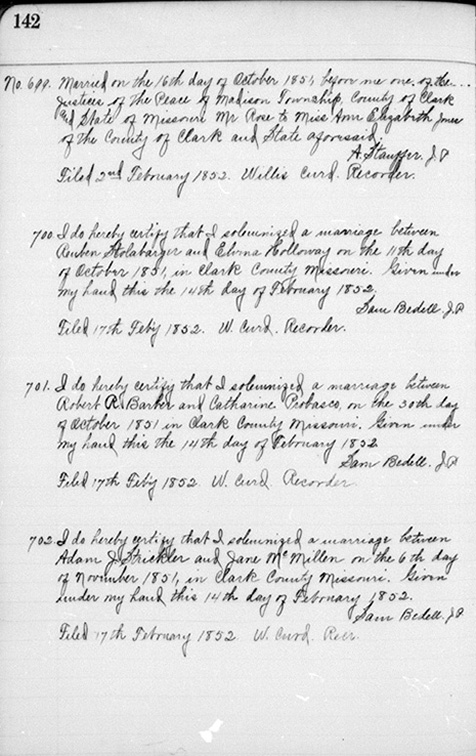 142
No. 699. Married on the 16th day of October 1851, before me one, of the...
Justices of the Peace of Madison Township, County of Clark
and State of Missouri Mr Rose to Miss Ann Elizabeth Jones
of the County of Clark and State aforesaid.
A. Stauffer J.P
Filed 2nd February 1852. Willis Curd. Recorder.
700. I do hereby certify that I solemnized a marriage between
Reuben Stolabarger and Elvina Holloway on the 11th day
of October 1851, in Clark County Missouri. Given under
my hand this the 14th day of February 1852.
Sam Bedell. J.P
Filed 17th Feb'y 1852. W. Curd. Recorder.
701. I do hereby certify that I solemnized a marriage between
Robert R. Barker and Catharine Probasco, on the 30th day
of October 1851 in Clark County Missouri. Given under
my hand this the 14th day of February 1852
Sam Bedell. J.P.
Filed 17th Feb'y 1852. W. Curd. Recorder
702. I do hereby certify that I solemnized a marriage between
Adam J. Strickler and Jane McMillen on the 6th day
of November 1851, in Clark County Missouri. Given
under my hand this 14th day of February 1852.
Sam Bedell. J.P.
Filed 17th February 1852. W. Curd. Recr.